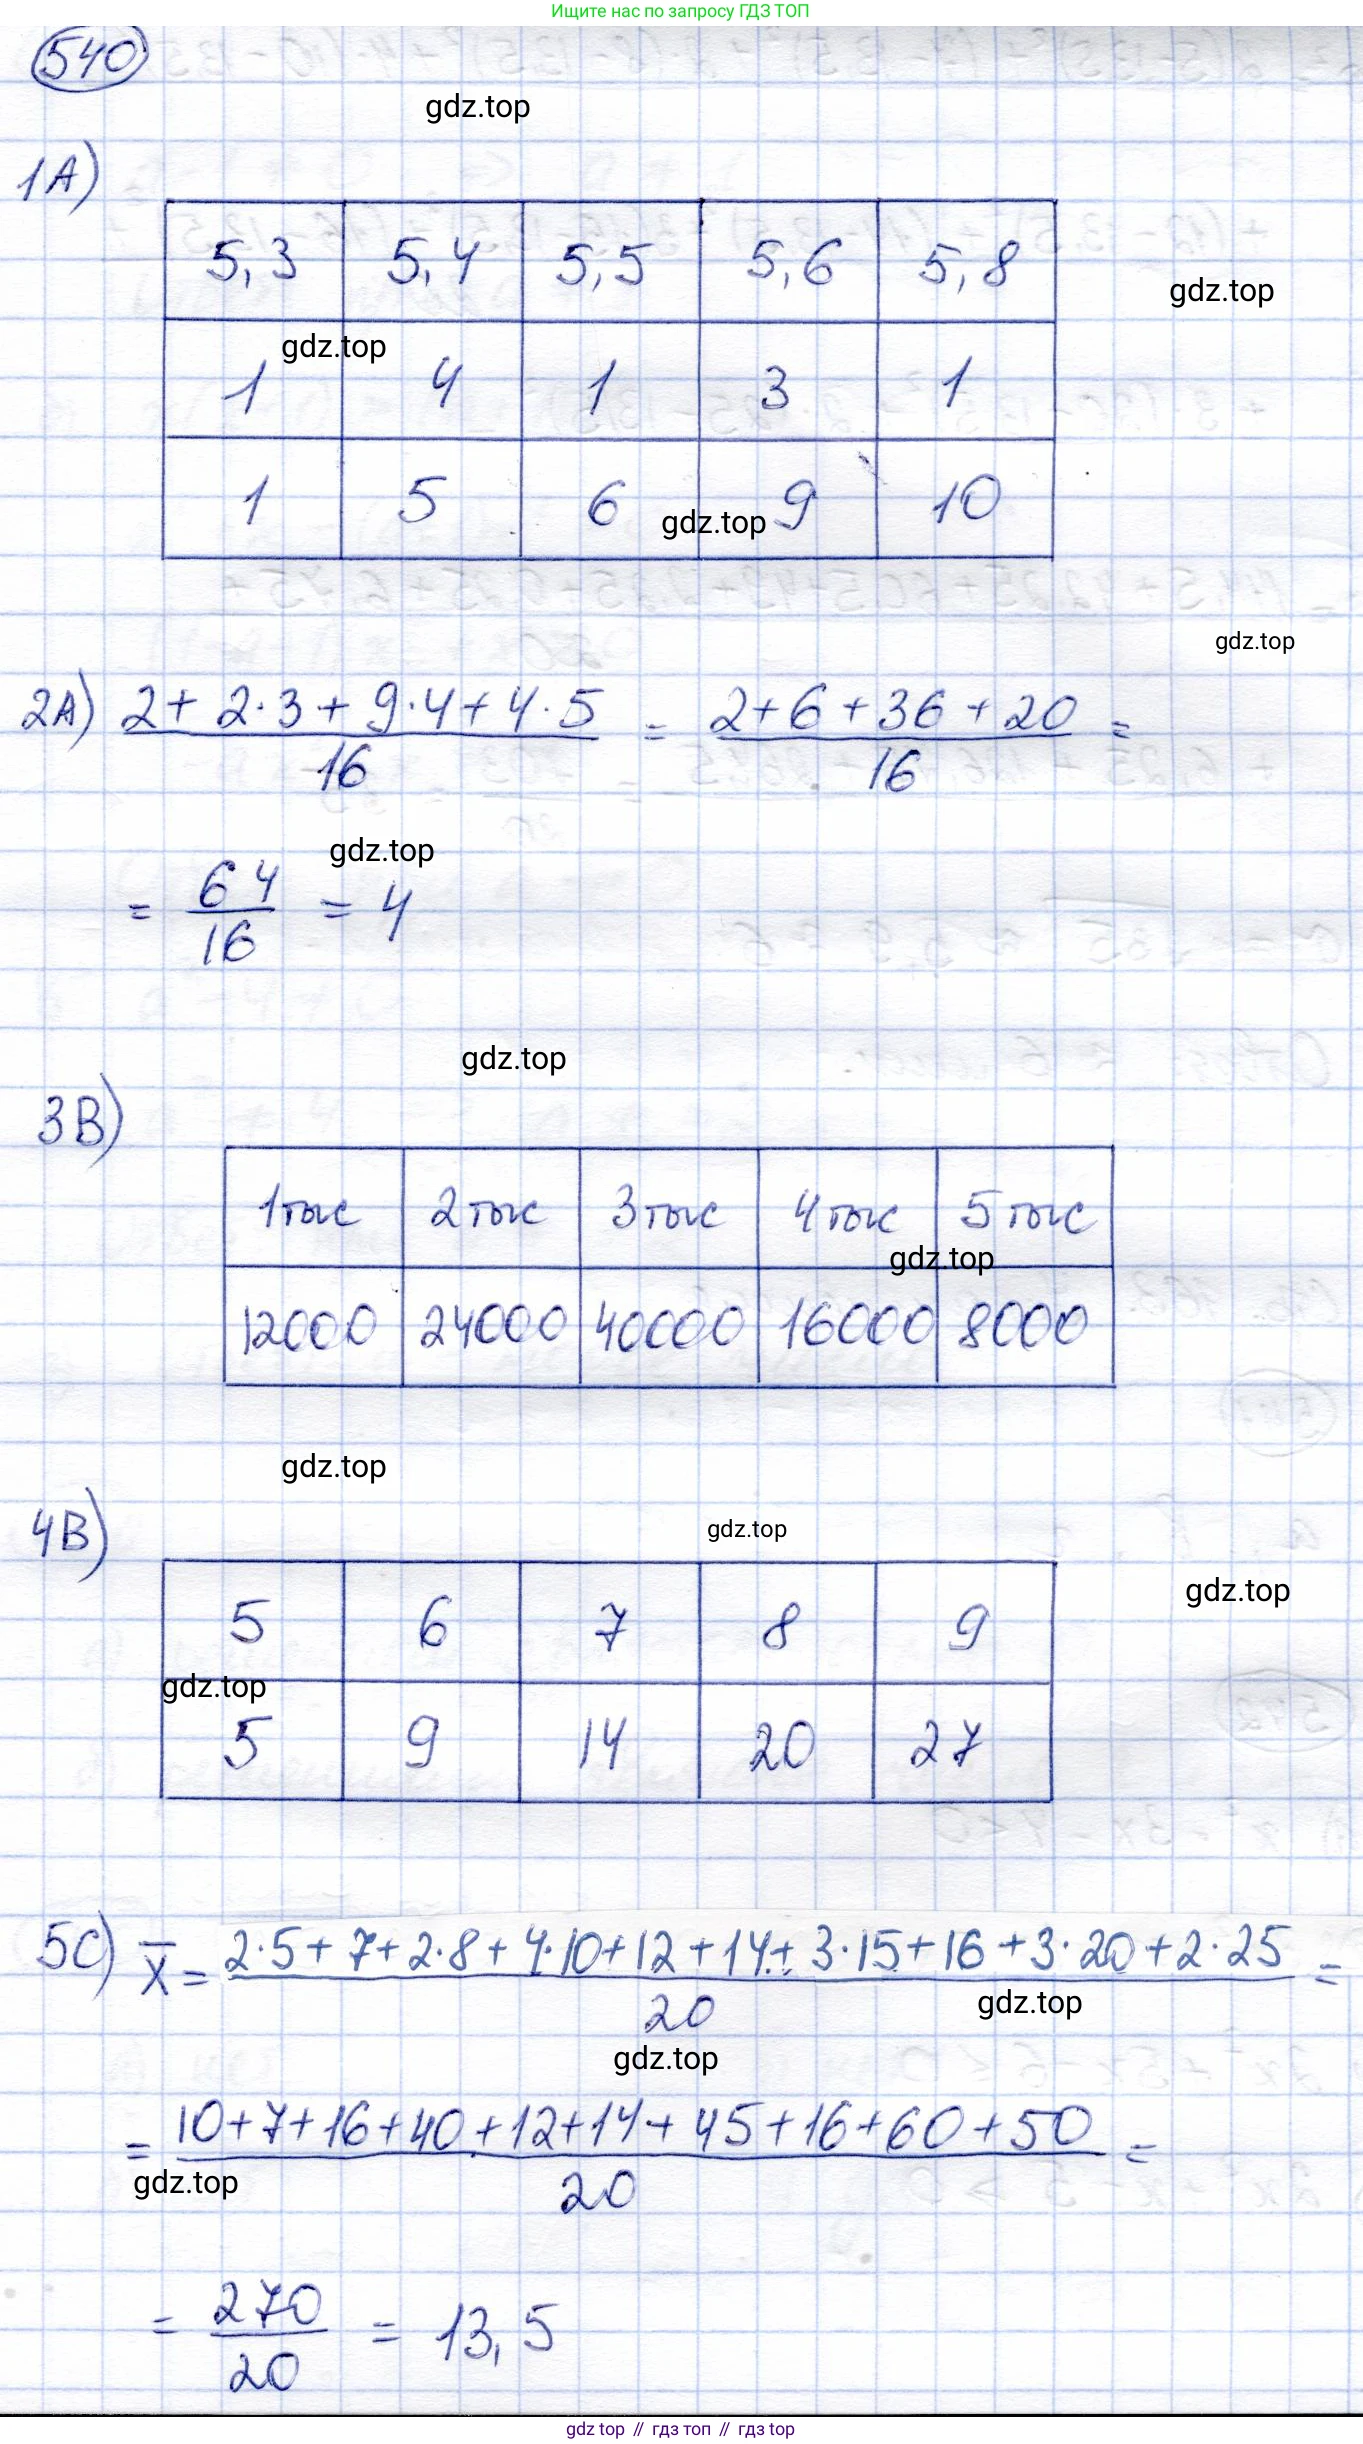 Ищите нас по запросу ГДЗ ТОП
540
gdz.top
1А)
5,3 5,4 5,5 5,6 5,8
gdz.top
gdz.top
1 4 1 3 1
1 5 6 9 10
gdz.top
gdz.top
2А) (2 + 2·3 + 9·4 + 4·5)/16 = (2 + 6 + 36 + 20)/16 =
gdz.top
= 64/16 = 4
gdz.top
3В)
1 тыс 2 тыс 3 тыс 4 тыс 5 тыс
gdz.top
12000 24000 40000 16000 8000
gdz.top
4В)
gdz.top
gdz.top
5 6 7 8 9
gdz.top
5 9 14 20 27
5С) x̅ = (2·5 + 7 + 2·8 + 4·10 + 12 + 14 + 3·15 + 16 + 3·20 + 2·25)/20 =
gdz.top
gdz.top
= (10 + 7 + 16 + 40 + 12 + 14 + 45 + 16 + 60 + 50)/20 =
gdz.top
= 270/20 = 13,5
gdz top // гдз топ // gdz top